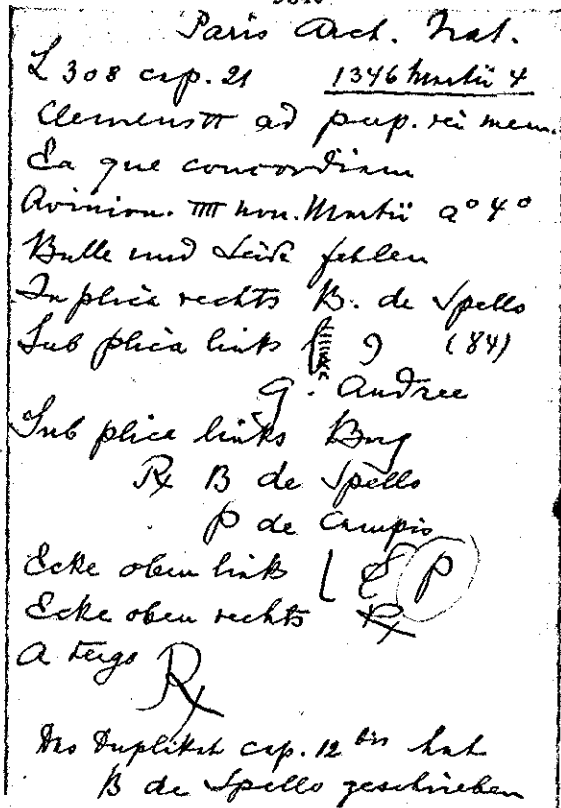 Paris Arch. Nat.
L 308 cap. 21 1346 Martii 4
Clemens VI ad perp. rei mem.
Ea que concordiam
Avinion. IIII non. Martii a° 4°
Bulle und Seide fehlen
In plica rechts B. de Spello
Sub plica links (84)
G. Andree
Sub plica links
Rx B de Spello
P de Campis
Ecke oben links P
Ecke oben rechts Rx
A tergo Rx
Das Duplikat cap. 12 bis hat
B de Spello geschrieben